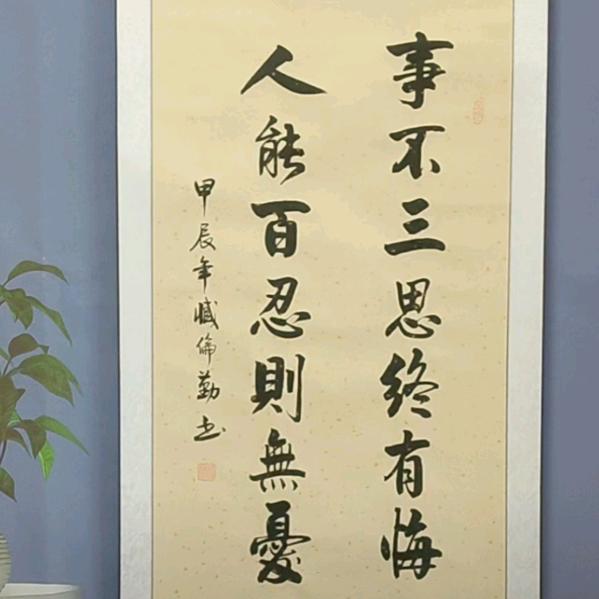 事不三思終有悔
人能百忍則無憂
甲辰年臧倫勤书